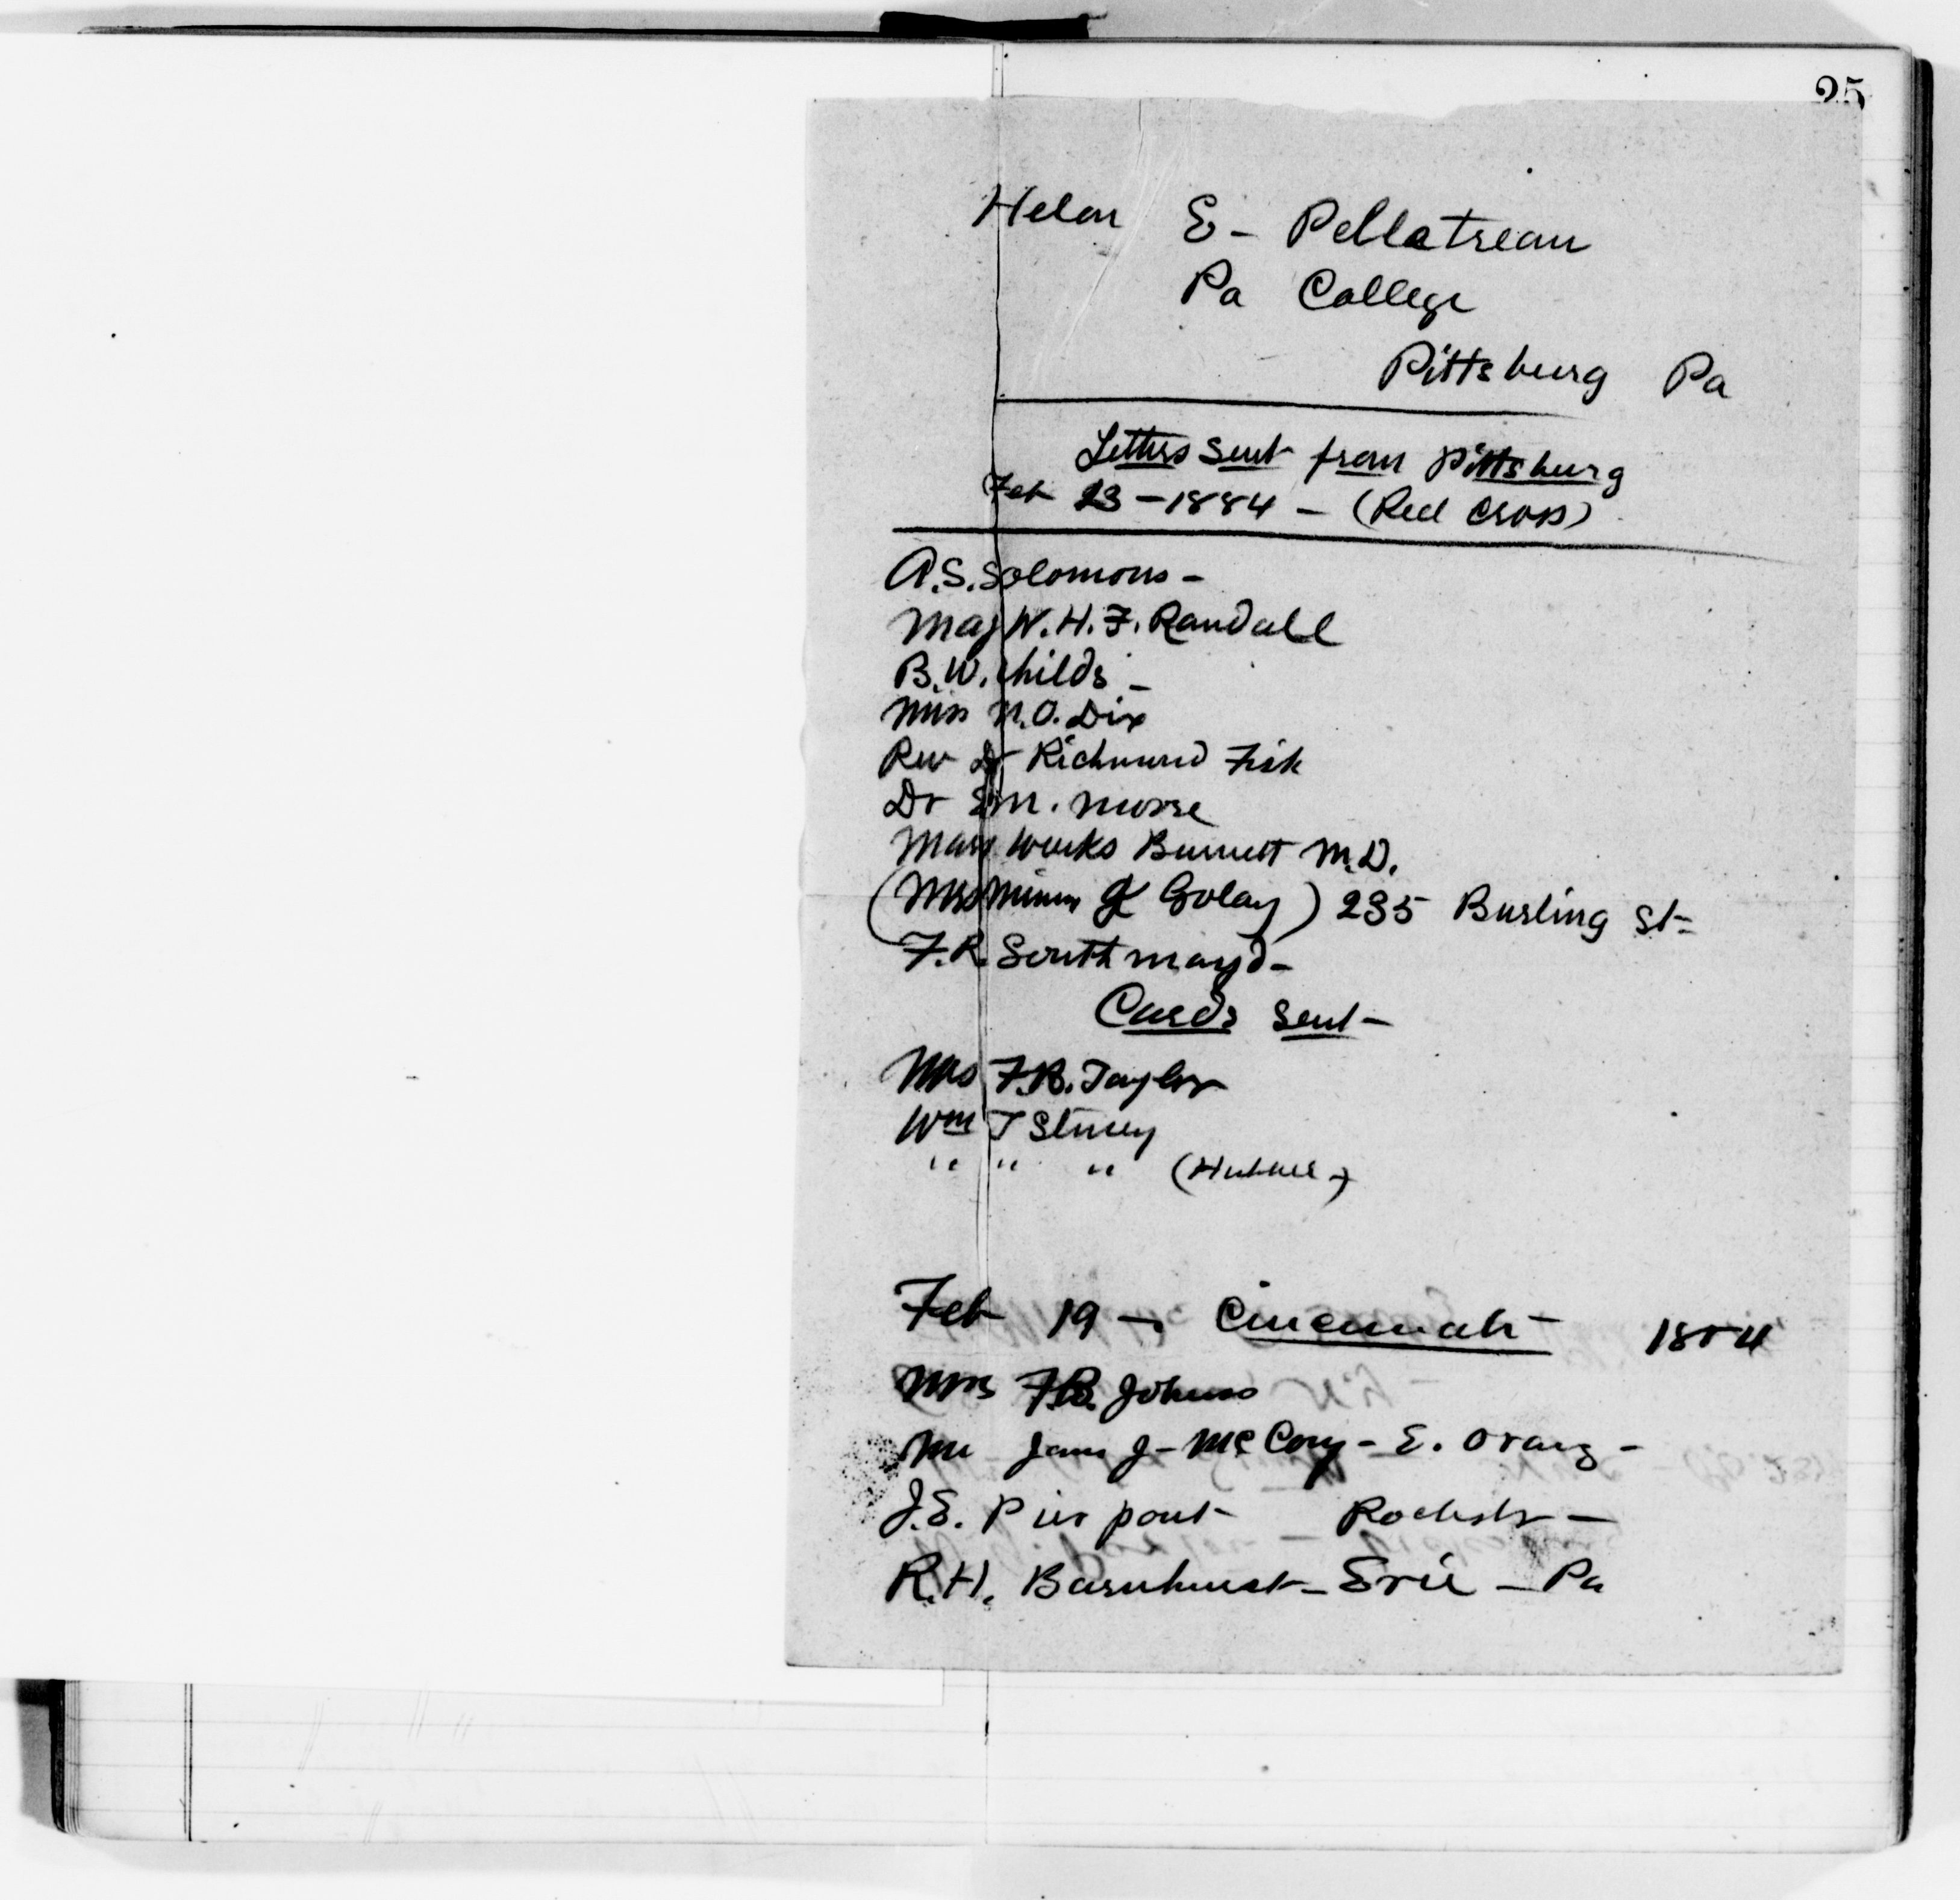 25
Helen E - Pelletreau
Pa College
Pittsburg Pa
Letters sent from Pittsburg
Feb 23 - 1884 - (Red Cross)
A.S. Solomons -
Maj W. H. F. Randall
B. W. Childs -
Miss N. O. Dix
Rev Dr Richmond Fisk
Dr E M. Morse
Mary Weeks Burnett M.D.
(Mrs Golay) 235 Burling St -
F. R. Southmayd -
Cards sent -
Mrs F. B. Taylor
Wm T
" " "
Feb 19 - Cincinnati - 1884
Mrs F. B.
Mr J - McCoy - E. Orang -
J. E. Pierpont Rochstr -
R. H. Barnhurst - Erie - Pa